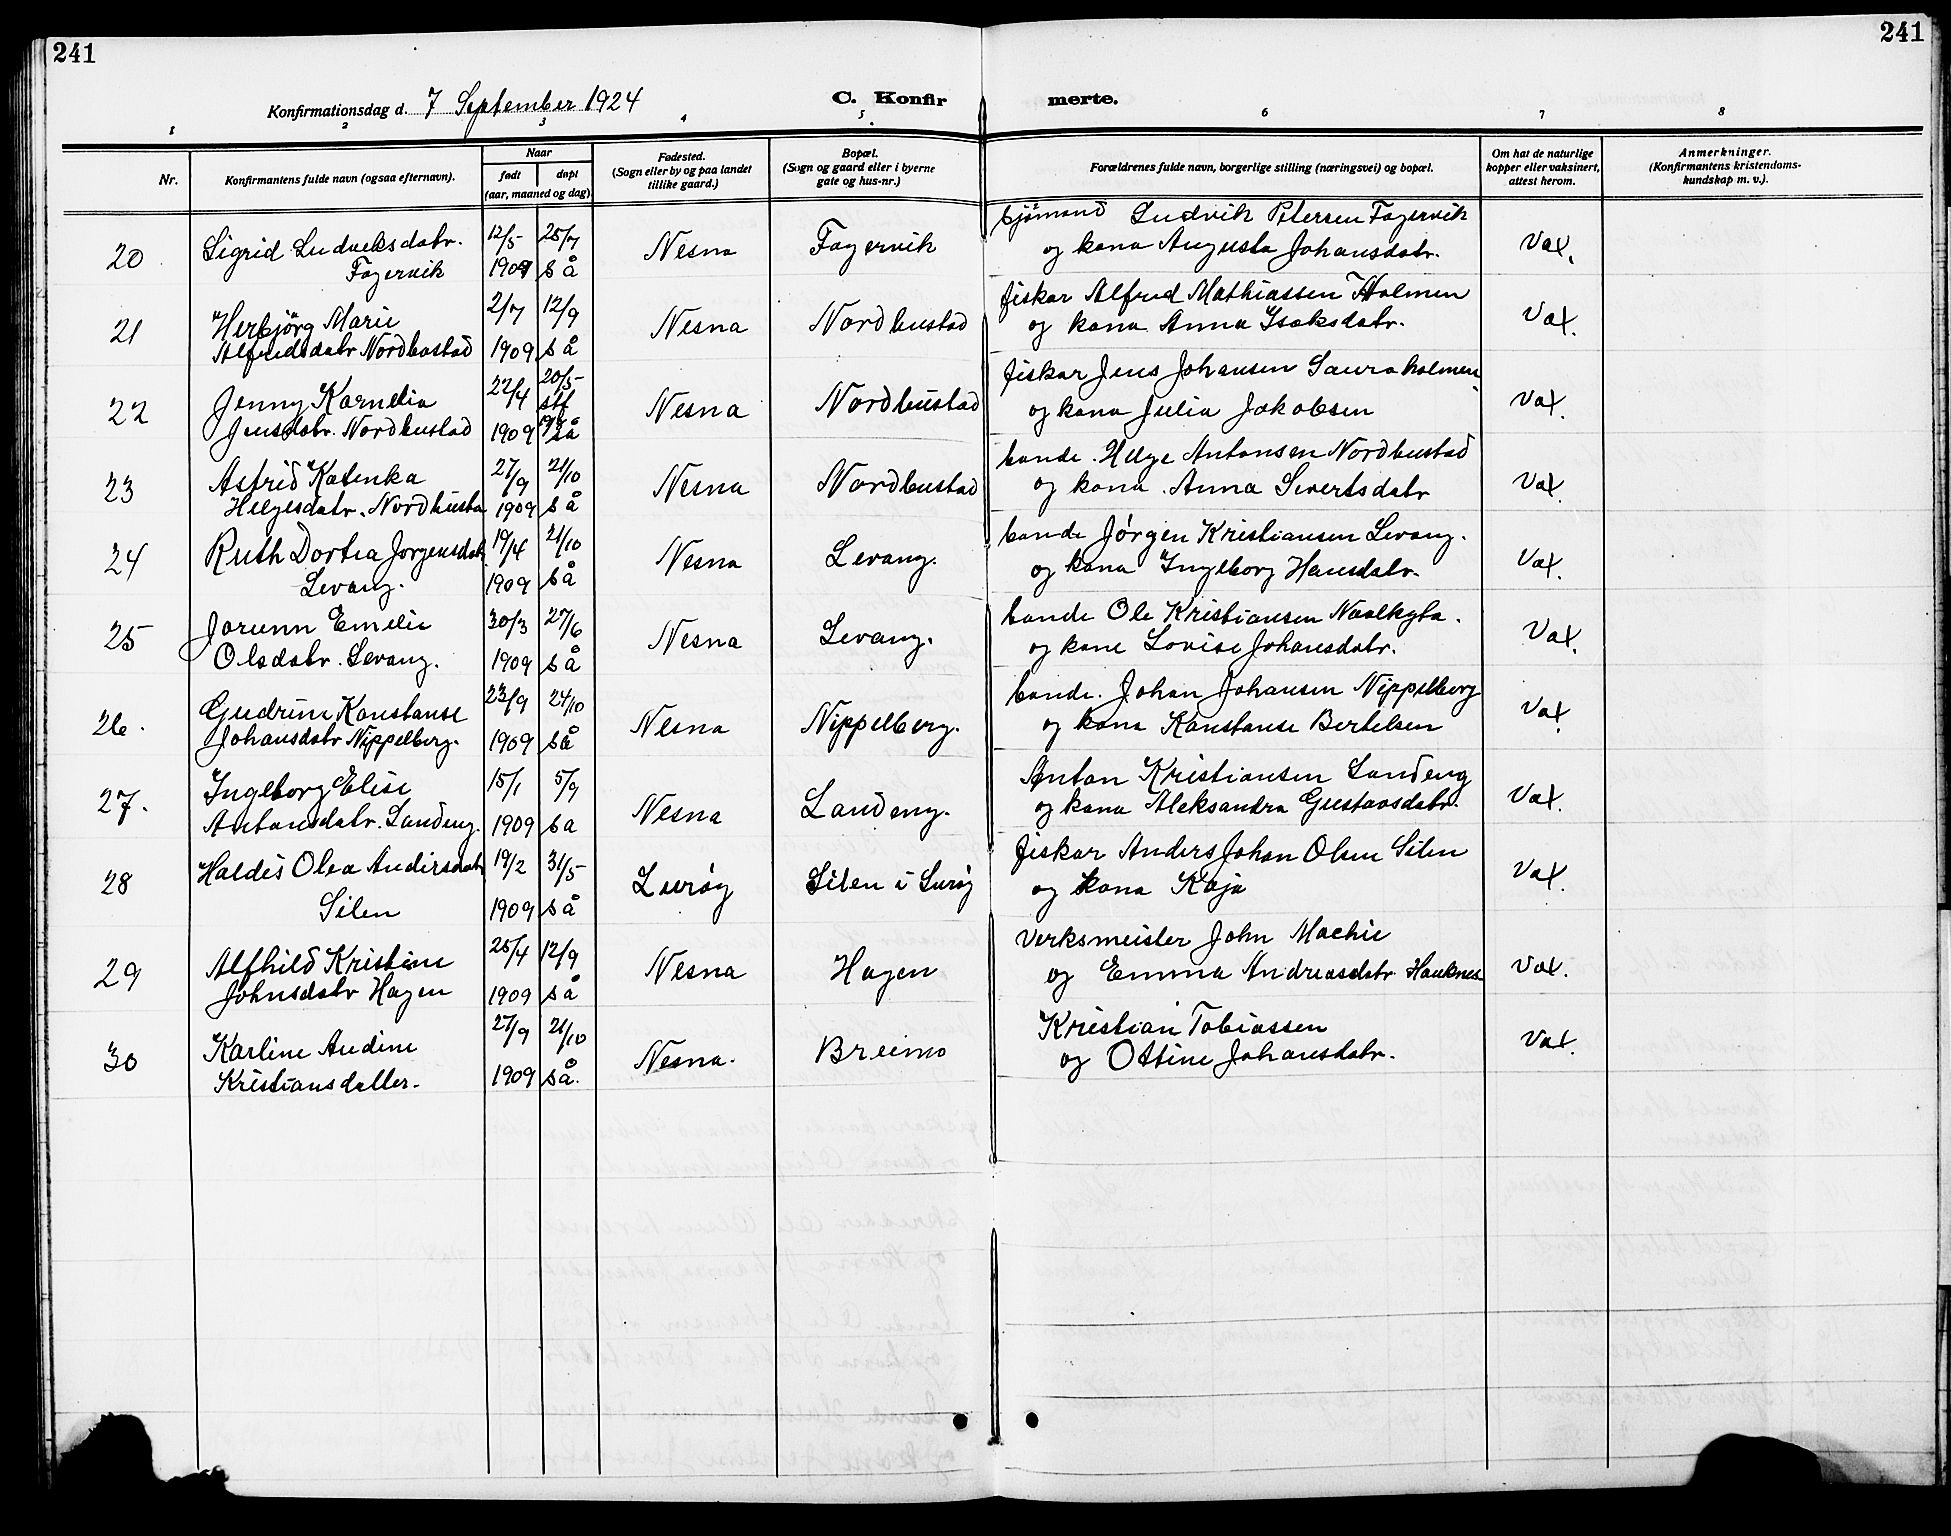 241
241
Konfirmationsdag d. 7 September 1924
C. Konfir merte.
1 2 3 4 5 6 7 8
Nr.
Konfirmantens fulde navn (ogsaa efternavn).
Naar
født
døpt
(aar, maaned og dag)
Fødested.
(Sogn eller by og paa landet
tillike gaard.)
Bopæl.
(Sogn og gaard eller i byerne
gate og hus-nr.)
Forældrenes fulde navn, borgerlige stilling (næringsvei) og bopæl.
Om hat de naturlige
kopper eller vaksinert,
attest herom.
Anmerkninger.
(Konfirmantens kristendoms-
kundskap m. v.).
20 Sigrid Ludveksdatr. 12/5- 25/7 Nesna Fagervik Ludvik Petersen Fagervik Vax.
Fagervik 1909 s å og kona Augusta Johansdatr.
21 Herbjörg Marie 2/7 12/9 Nesna Nordbustad fiskar Alfred Mathiassen Holmen Vax.
Alfredsdatr Nordbustad 1909 s å og kona Anna Isaksdatr.
22 Jenny Kornelia 22/4 20/5- Nesna Nordbustad fiskar Jens Johansen Sauraholmen Vax.
Jensdatr. Nordbustad 1909 så og kona Julia Jakobsen
23 Astrid Katinka 27/9 21/10 Nesna Nordbustad bonde. Helge Antonsen Nordbustad Vax.
Helgesdatr. Nordbusta 1909 s å og kona. Anna Sivertsdatr
24 Ruth Dortea Jorgensdat 19/4 21/10 Nesna Levang. bonde Jörgen Kristiansen Levang. Vax.
Levang. 1909 s å og kona Ingeborg Hansdatr.
25 Jorunn Emelie 30/3 27/6 Nesna Levang. bonde Ole Kristiansen Vax.
Olsdatr. Levang. 1909 s å og kone Lovise Johansdatr.
26. Gudrun Konstanse 23/9 24/10 Nesna Nippelberg. bonde. Johan Johansen Nippelberg Vax.
Johansdatr Nippelberg. 1909 så og kona Konstanse Bertelsen
27. Ingeborg Elise 15/1 5/9 Nesna Landeng. Anton Kristiansen Landeng Vax.
Antonsdatr. Landeng. 1909 s a og kona Aleksandra Gustavsdatr.
28 Haldis Olea Andersdatr 19/2 31/5- Lurøy Silen i Lurøy fiskar Anders Johan Olsen Silen Vax.
Silen 1909 s å og kona Kaja
29 Alfhild Kristine 25/4 12/9 Nesna Hagen Verksmeister John Machie Vax.
Johnsdatr Hagen 1909 s å og Emma Andreasdatr Hauknes
30 Karline Andine 27/9 21/10 Nesna. Breimo Kristian Tobiassen Vax.
Kristiansdatter. 1909 s å. og Ottine Johansdatr.